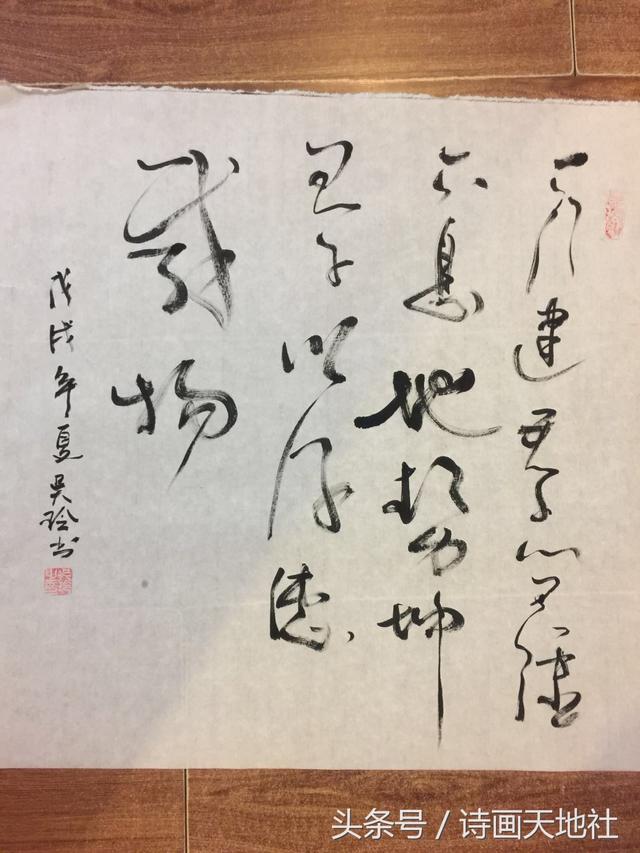 天行健君子以自强
不息地势坤
君子以厚德
载物
戊戌年夏吴玲书
头条号 / 诗画天地社